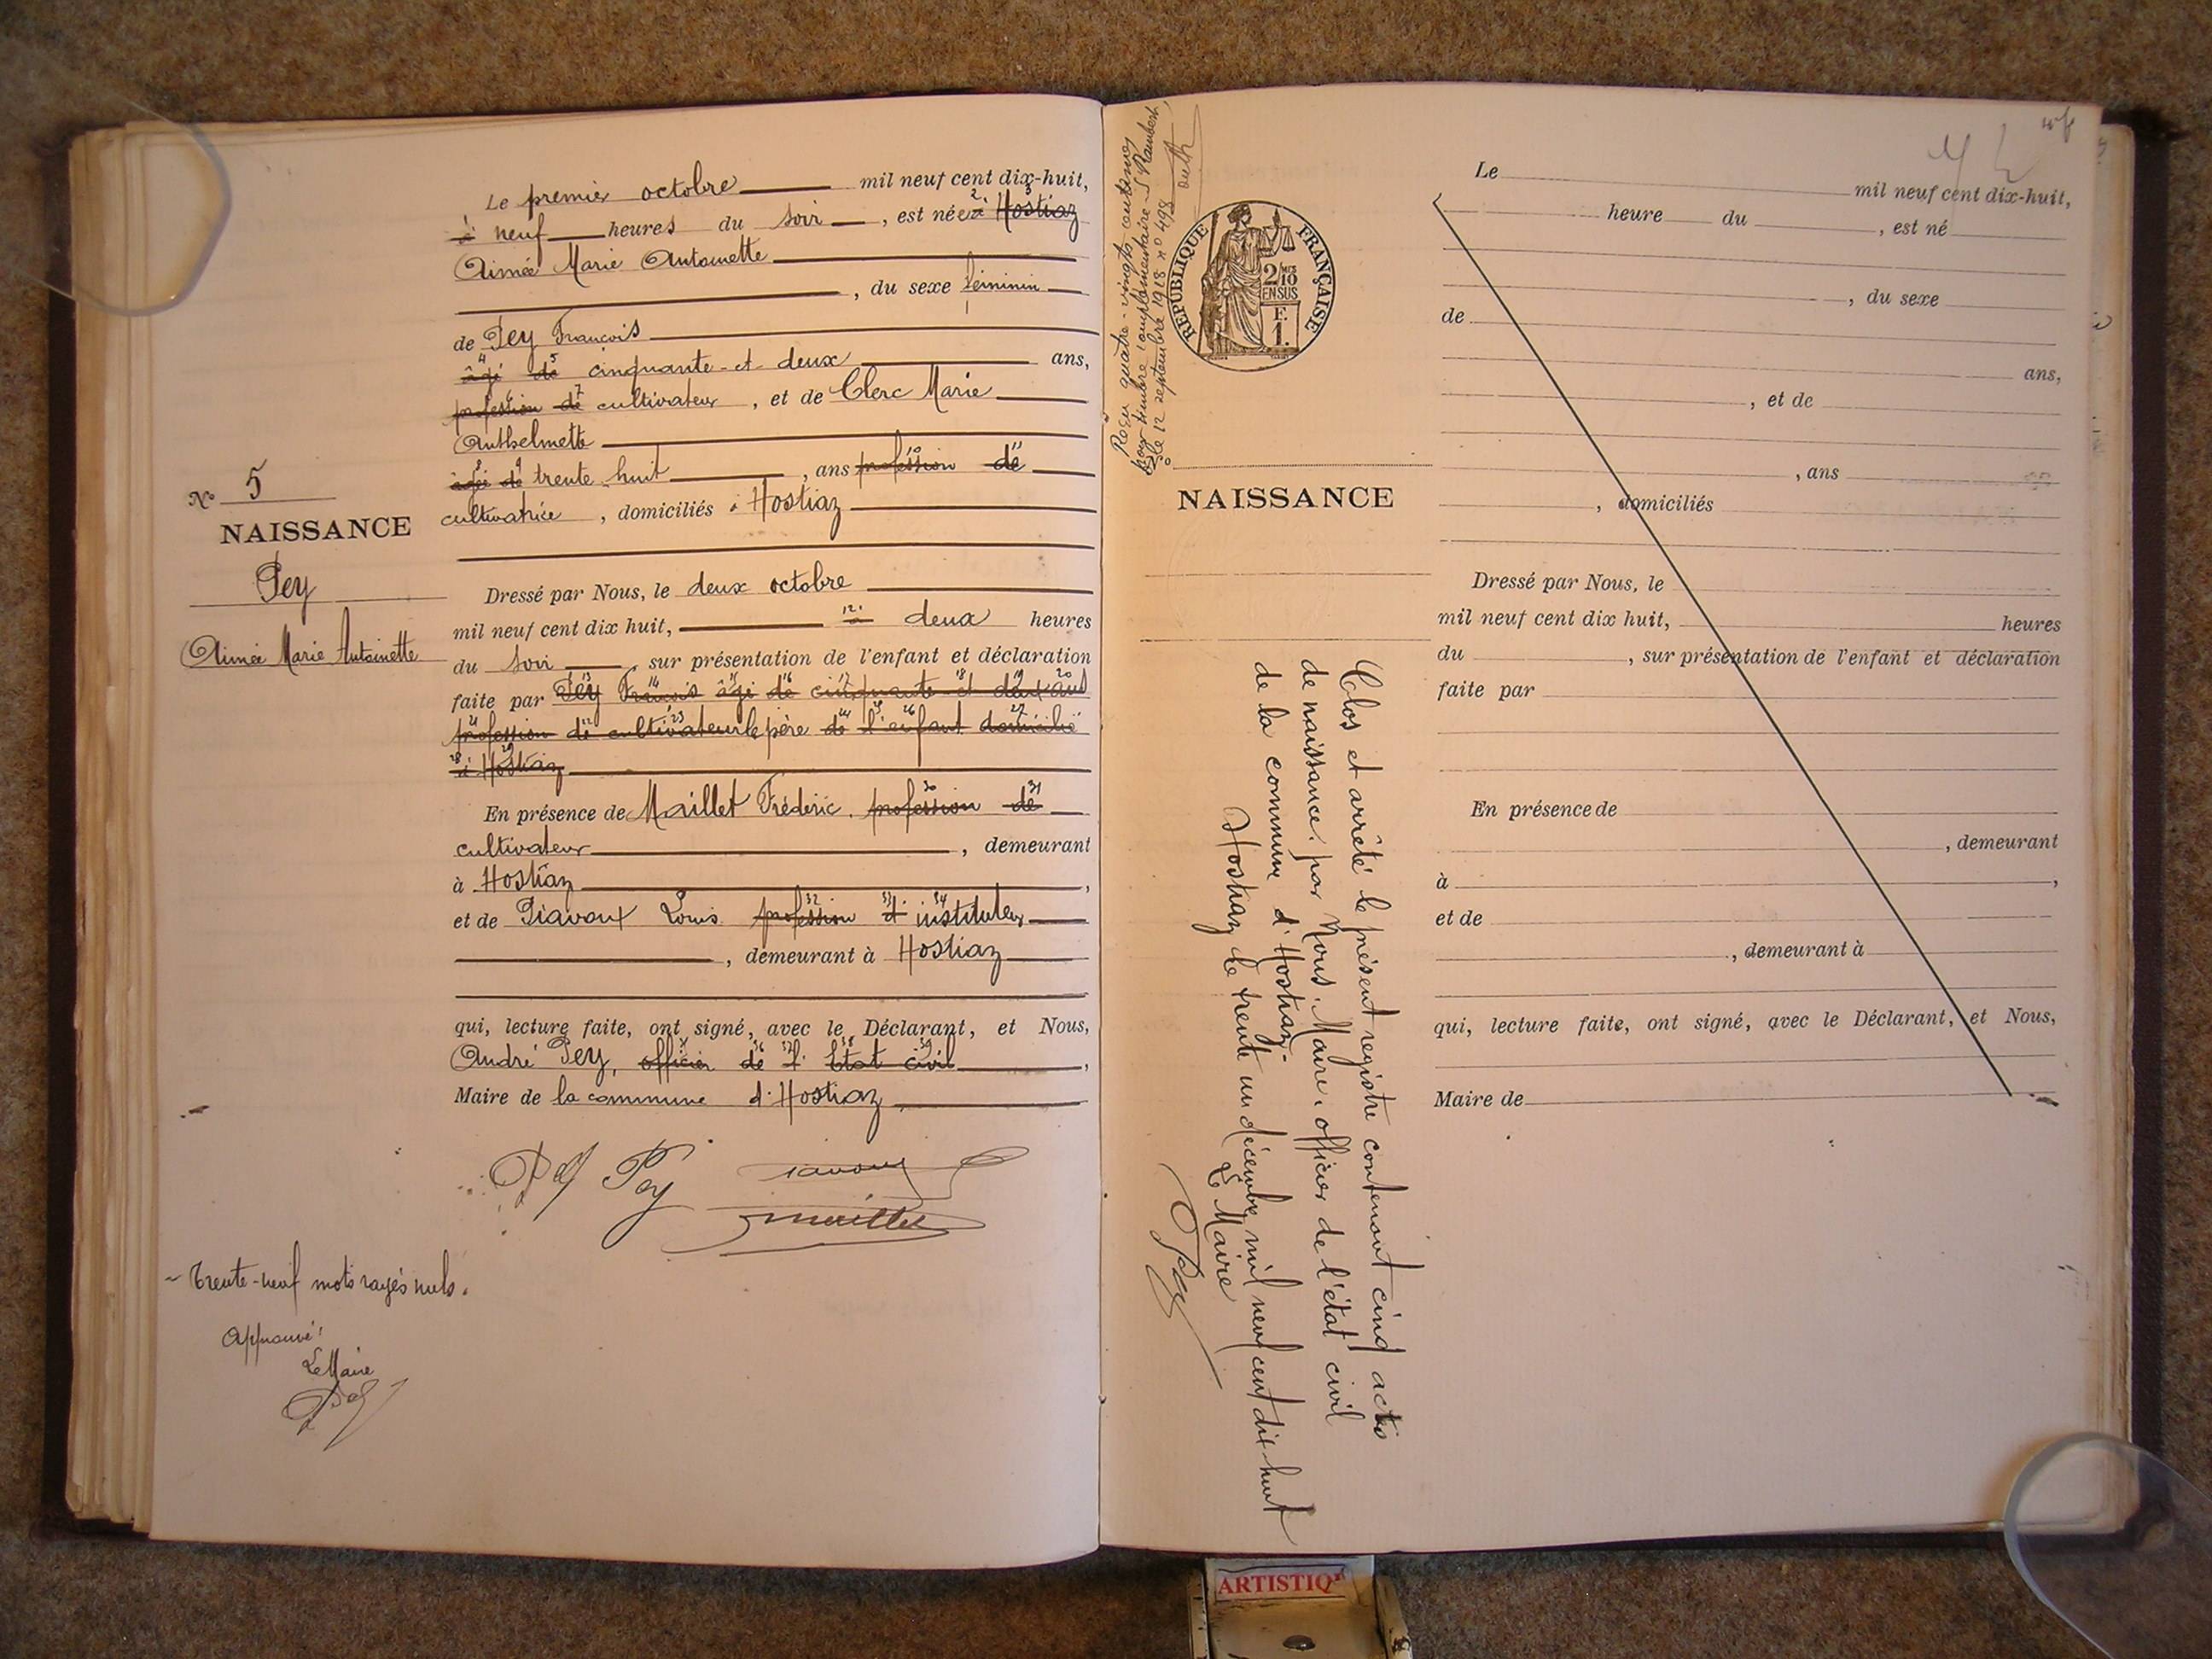 Le premier octobre mil neuf cent dix-huit,
à neuf heures du soir, est née à Hostiaz
Aimée Marie Antoinette
, du sexe féminin
de Pey François
âgé de cinquante-et deux ans,
profession de cultivateur, et de Clerc Marie
Anthelmette
âgée de trente huit, ans profession de
cultivatrice, domiciliés à Hostiaz
No 5
NAISSANCE
Pey
Aimée Marie Antoinette
Dressé par Nous, le deux octobre
mil neuf cent dix huit, à deux heures
du soir, sur présentation de l'enfant et déclaration
faite par Pey François âgé de cinquante et deux ans
profession de cultivateur le père de l'enfant domicilié
à Hostiaz
En présence de Maillet Frédéric. profession de
cultivateur, demeurant
à Hostiaz,
et de Piavoux Louis. profession d'instituteur
, demeurant à Hostiaz
qui, lecture faite, ont signé, avec le Déclarant, et Nous,
André Pey, officier de l'Etat civil,
Maire de la commune d'Hostiaz
Pey Pey
Maillet
- Trente-neuf mots rayés nuls.
Approuvé:
Le Maire
Pey
Reçu quatre-vingts centimes
pour timbre complémentaire St Rambert,
le 12 septembre 1918 No 498
RÉPUBLIQUE FRANÇAISE
2/10
EN SUS
F.
1.
NAISSANCE
Clos et arrêté le présent registre contenant cinq actes
de naissance, par Nous, Maire, officier de l'état civil
de la commune d'Hostiaz.
Hostiaz le trente un décembre mil neuf cent dix-huit
Le Maire
Pey
Le mil neuf cent dix-huit,
heure du, est né
, du sexe
de
ans,
, et de
, ans
, domiciliés
Dressé par Nous, le
mil neuf cent dix huit, heures
du, sur présentation de l'enfant et déclaration
faite par
En présence de,
, demeurant
à,
et de
, demeurant à
qui, lecture faite, ont signé, avec le Déclarant, et Nous,
Maire de
ARTISTIQ